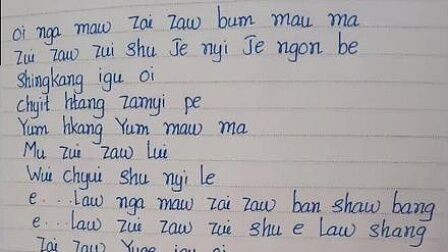 oi nga maw zai zaw bum mau ma
zui zaw zui shu Je nyi Je ngon be
Shingkang igu oi
Chyit htang zamyi pe
Yum hkang Yum maw ma
Mu zui zaw lui
Wui chyui shu nyi le
e...law nga maw zai zaw ban shaw bang
e...law zui zaw zui shu e law shang
zai zaw igu oi